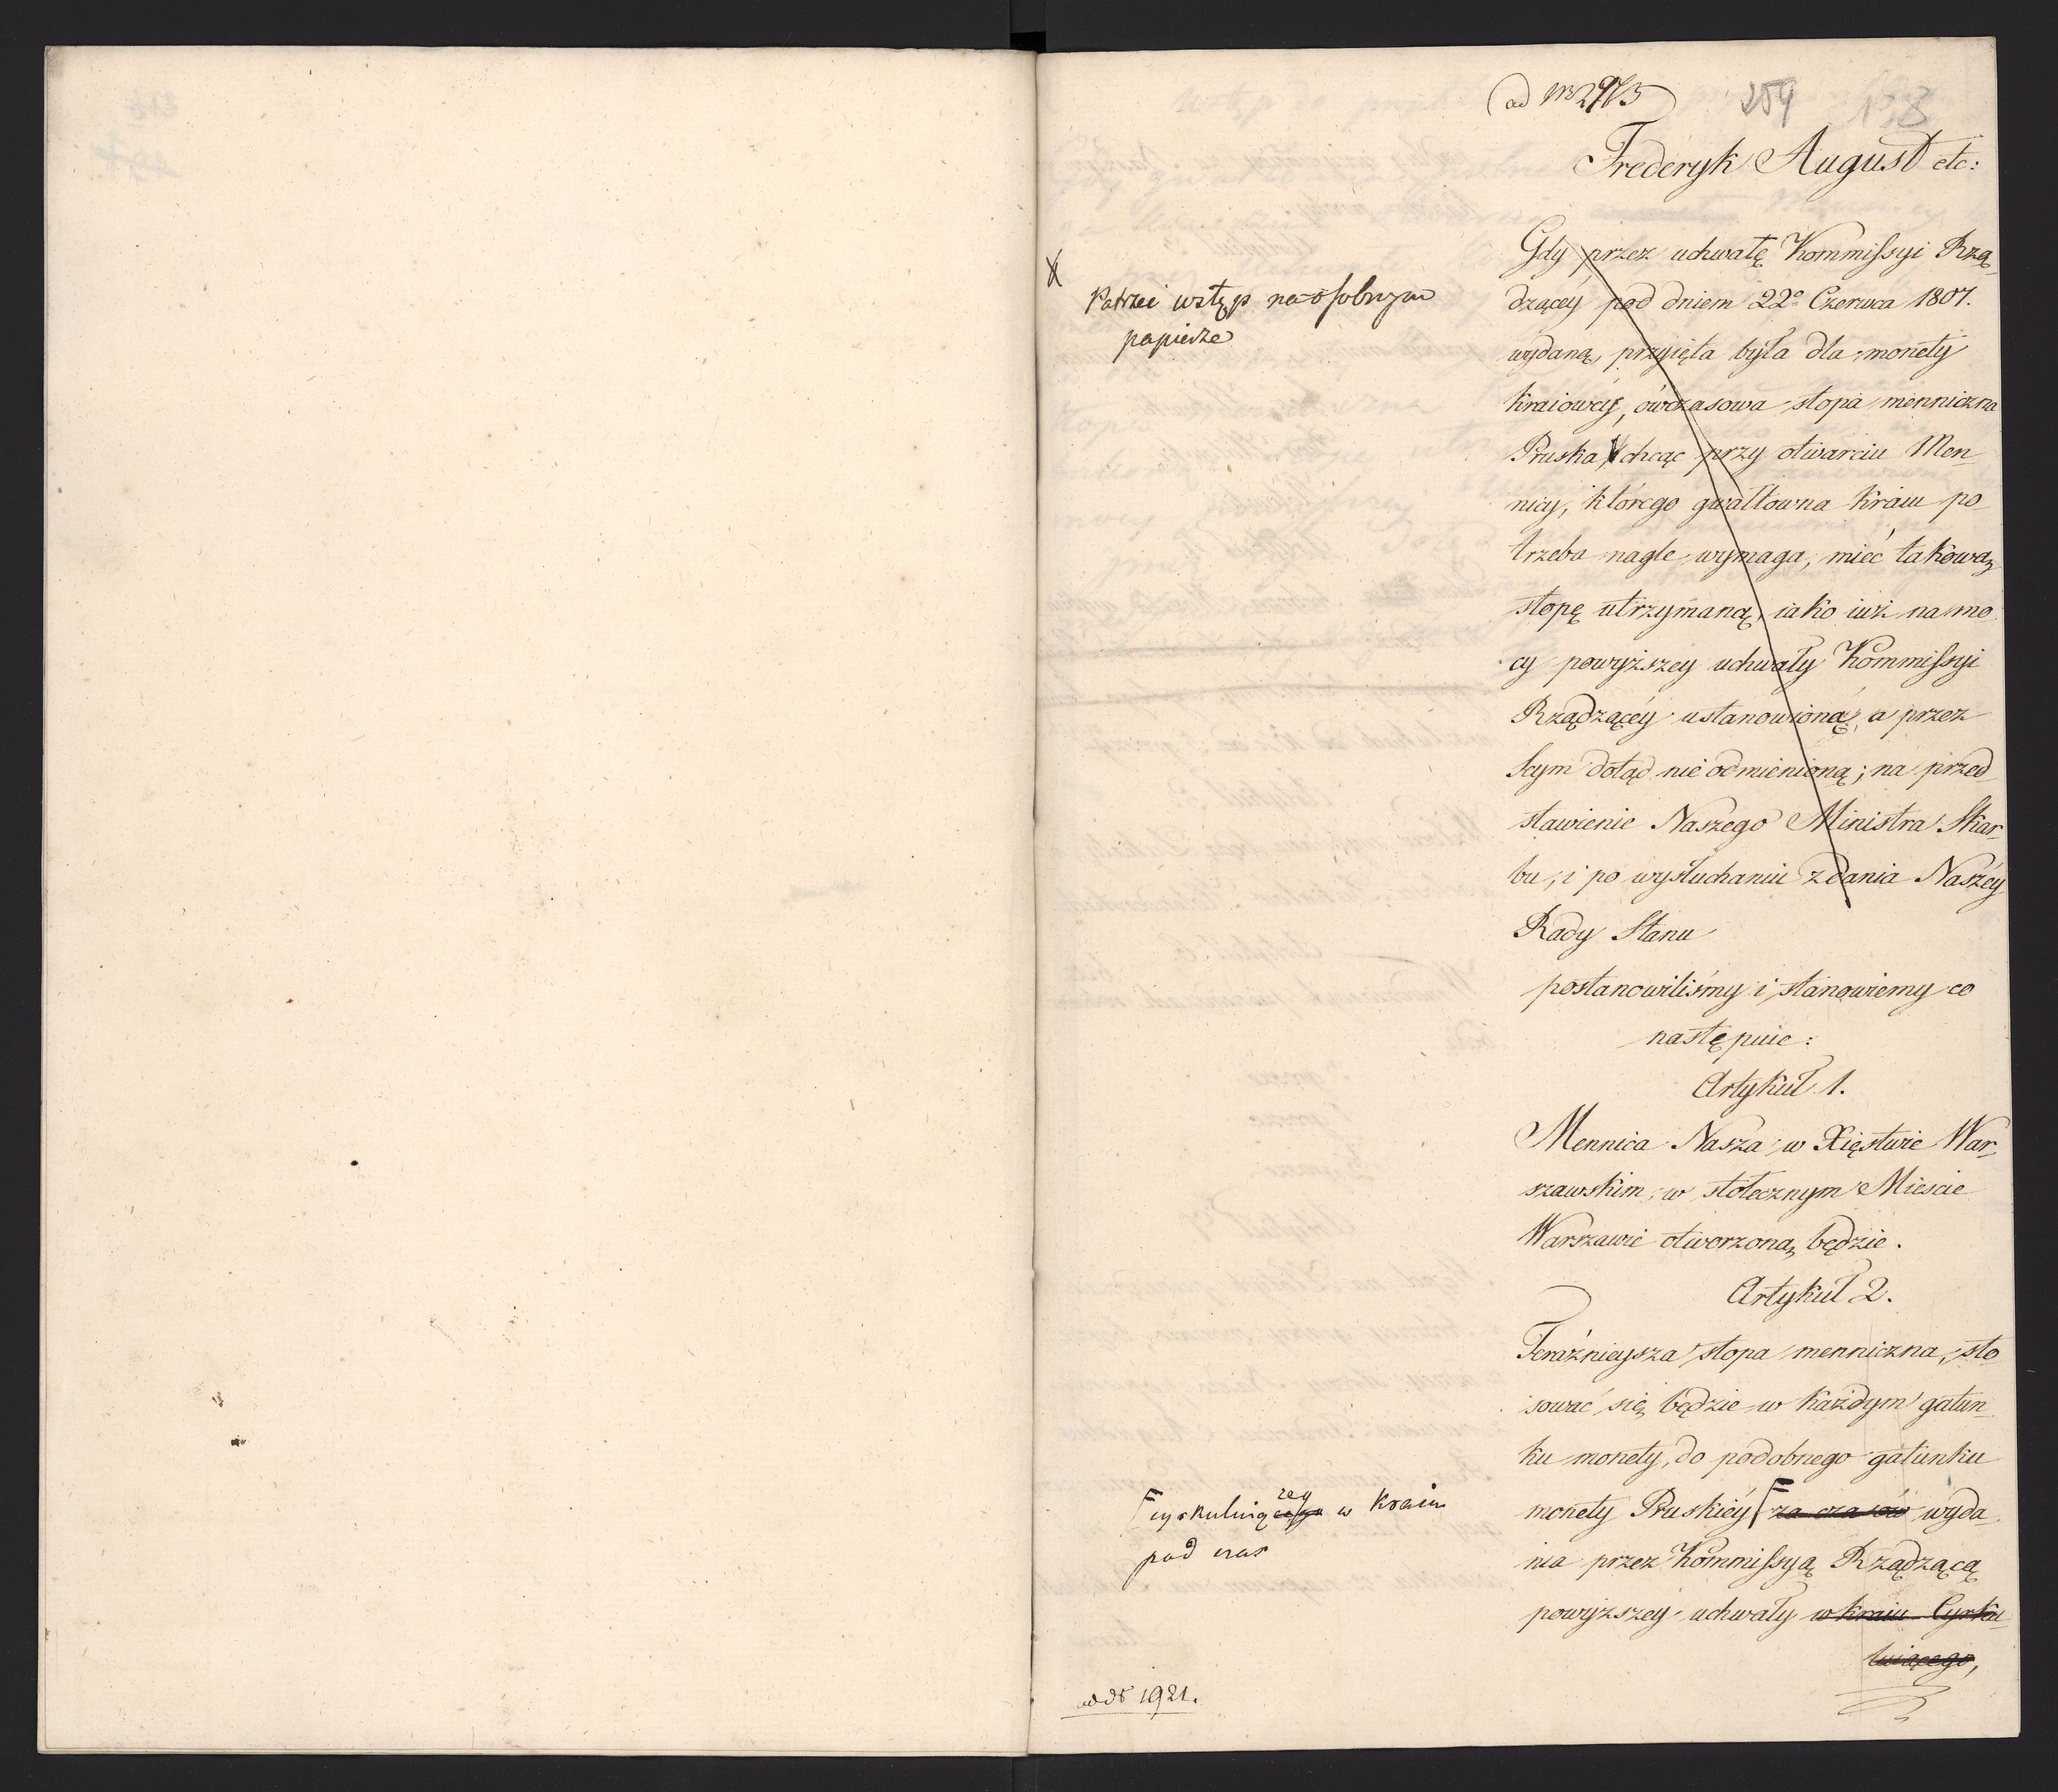 ad Nro 2973
259
Frederyk August etc:
Patrzei wstęp na osobnym
papierze
Gdy przez uchwałę Kommissyi Rzą-
dzącéy pod dniem 22o Czerwca 1807.
wydaną, przyięta była dla monety
kraiowéy, ówczasowa stopa mennicza
Pruska, chcąc przy otwarciu Men-
nicy, którego gwałtowna kraiu po-
trzeba nagle wymaga, mieć takową
stopę utrzymaną, iako iuż na mo-
cy powyższey uchwały Kommissyi
Rządzącéy ustanowioną, a przez
Seym dotąd nie odmienioną; na przed-
stawienie Naszego Ministra Skar-
bu, i po wysłuchaniu zdania Naszéy
Rady Stanu
postanowiliśmy i stanowiemy co
następuie:
Artykuł 1.
Mennica Nasza w Xięstwie War-
szawskim, w stołecznym Miescie
Warszawie otworzoną będzie.
Artykuł 2.
Teráźnieysza stopa mennicza, sto-
sować się będzie w każdym gatun-
ku monety, do podobnego gatunku
monety Pruskiéy za czasów wyda-
nia przez Kommissyą Rządzącą
powyższey uchwały w kraiu Cyrku-
luiącego,
cyrkuluiącey w kraiu
pod czas
add 1921.